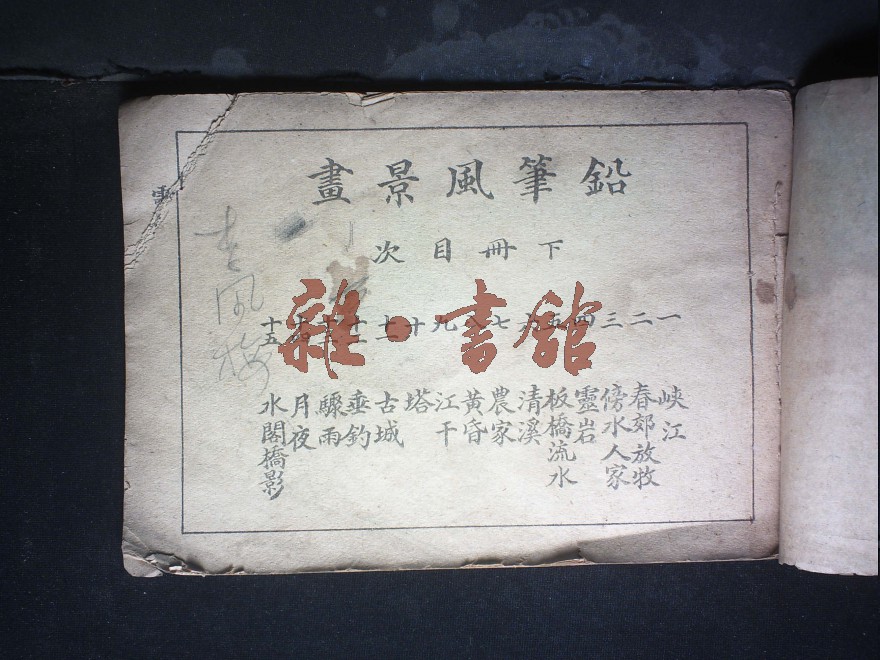 鉛筆風景畫
下冊目次
一 峽江
二 春郊放牧
三 傍水人家
四 靈岩
五 板橋流水
六 清溪
七 農家
八 黃昏
九 江干
十 塔
十一 古城
十二 垂釣
十三 驟雨
十四 月夜
十五 水閣橋影
雜·書館